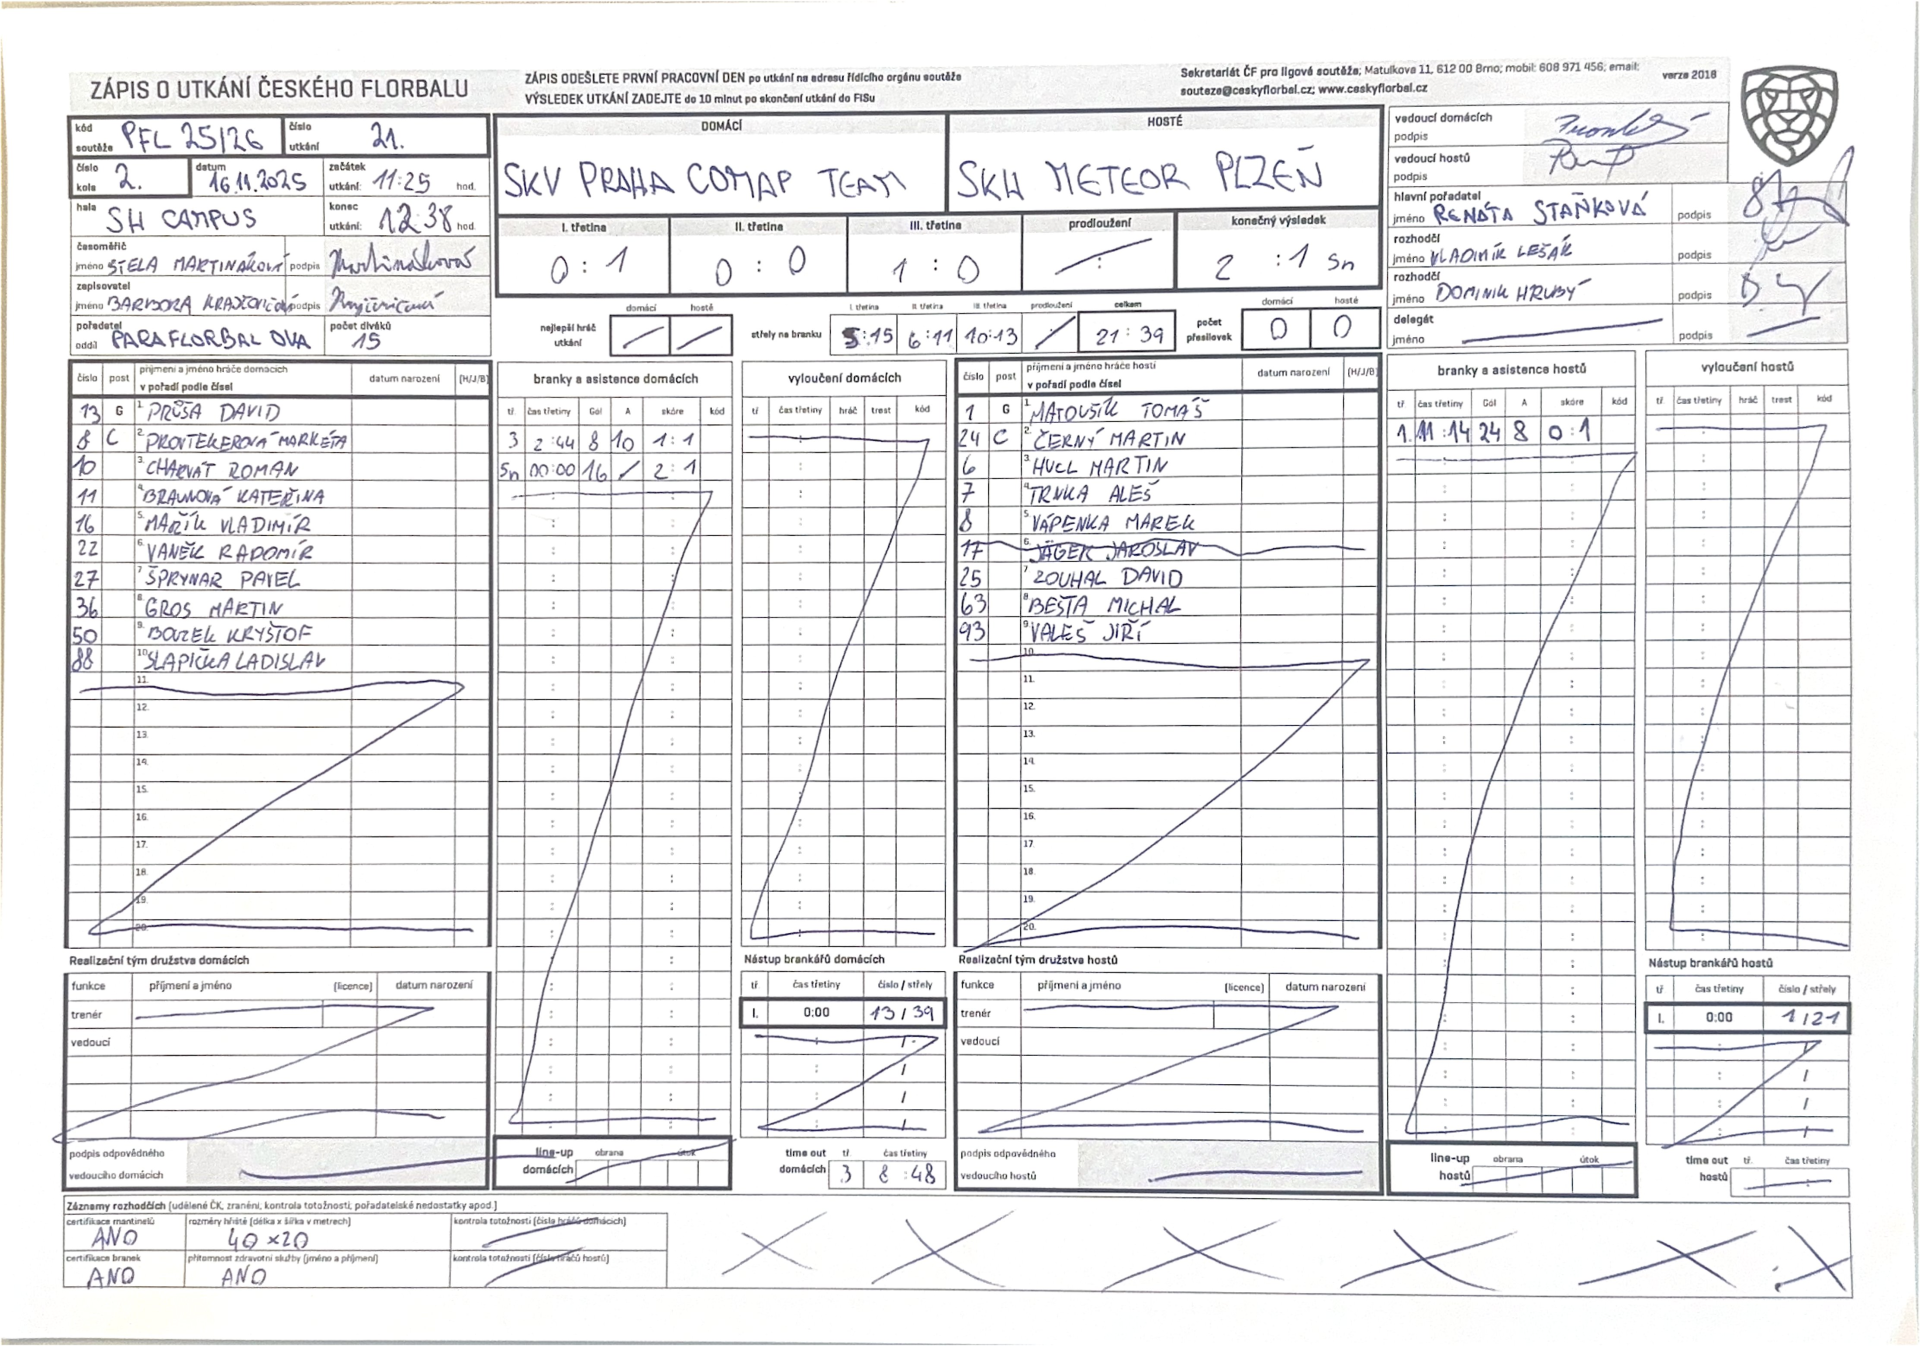 ZÁPIS O UTKÁNÍ ČESKÉHO FLORBALU
ZÁPIS ODEŠLETE PRVNÍ PRACOVNÍ DEN po utkání na adresu řídícího orgánu soutěže
VÝSLEDEK UTKÁNÍ ZADEJTE do 10 minut po skončení utkání do FISu
Sekretariát ČF pro ligové soutěže; Matulkova 11, 612 00 Brno; mobil: 608 971 456; email:
souteze@ceskyflorbal.cz; www.ceskyflorbal.cz
verze 2018
kód soutěže PFL 25/26 číslo utkání 21.
číslo kola 2. datum 16.11.2025 začátek utkání: 11:25 hod.
hala SH CAMPUS konec utkání: 12:38 hod.
časoměřič
jméno STELA MARTINÁKOVÁ podpis
zapisovatel
jméno BARBORA podpis
pořadatel oddíl PARAFLORBAL OVA počet diváků 15
DOMÁCÍ
SKV PRAHA COMAP TEAM
HOSTÉ
SKH METEOR PLZEŇ
I. třetina II. třetina III. třetina prodloužení konečný výsledek
0 : 1 0 : 0 1 : 0 : 2 : 1 Sn
domácí hosté
nejlepší hráč utkání
I. třetina II. třetina III. třetina prodloužení celkem
střely na branku 5:15 6:11 10:13 21:39
počet přesilovek domácí hosté
0 0
vedoucí domácích
podpis
vedoucí hostů
podpis
hlavní pořadatel
jméno RENÁTA STAŇKOVÁ podpis
rozhodčí
jméno VLADIMÍR LEŠÁK podpis
rozhodčí
jméno DOMINIK HRUBÝ podpis
delegát
jméno podpis
číslo post příjmení a jméno hráče domácích v pořadí podle čísel datum narození (H/J/B)
13 G 1. PRŮŠA DAVID
8 C 2. MARKÉTA
10 3. CHARVÁT ROMAN
11 4. BRAUNOVÁ KATEŘINA
16 5. MAŘÍK VLADIMÍR
22 6. VANĚK RADOMÍR
27 7. ŠPRYNAR PAVEL
36 8. GROS MARTIN
50 9. KRYŠTOF
88 10. SLAPIČKA LADISLAV
11.
12.
13.
14.
15.
16.
17.
18.
19.
20.
branky a asistence domácích
tř. čas třetiny Gól A skóre kód
3 2:44 8 10 1:1
Sn 00:00 16 / 2:1
vyloučení domácích
tř čas třetiny hráč trest kód
číslo post příjmení a jméno hráče hostí v pořadí podle čísel datum narození (H/J/B)
1 G 1. MATOUŠÍK TOMÁŠ
24 C 2. ČERNÝ MARTIN
6 3. HUCL MARTIN
7 4. TRNKA ALEŠ
8 5. VÁPENKA MAREK
17 6. JÄGER JAROSLAV
25 7. ZOUHAL DAVID
63 8. BEŠTA MICHAL
93 9. VALEŠ JIŘÍ
10.
11.
12.
13.
14.
15.
16.
17.
18.
19.
20.
branky a asistence hostů
tř čas třetiny Gól A skóre kód
1. 11:14 24 8 0:1
vyloučení hostů
tř. čas třetiny hráč trest kód
Realizační tým družstva domácích
funkce příjmení a jméno (licence) datum narození
trenér
vedoucí
podpis odpovědného
vedoucího domácích
line-up domácích obrana útok
Nástup brankářů domácích
tř čas třetiny číslo / střely
I. 0:00 13 / 39
time out domácích tř. čas třetiny
3 8:48
Realizační tým družstva hostů
funkce příjmení a jméno (licence) datum narození
trenér
vedoucí
podpis odpovědného
vedoucího hostů
line-up hostů obrana útok
Nástup brankářů hostů
tř čas třetiny číslo / střely
I. 0:00 1 / 21
time out hostů tř. čas třetiny
Záznamy rozhodčích (udělené ČK, zranění, kontrola totožnosti, pořadatelské nedostatky apod.)
certifikace mantinelů ANO rozměry hřiště (délka x šířka v metrech) 40 x 20 kontrola totožnosti (čísla hráčů domácích)
certifikace branek ANO přítomnost zdravotní služby (jméno a příjmení) ANO kontrola totožnosti (čísla hráčů hostů)